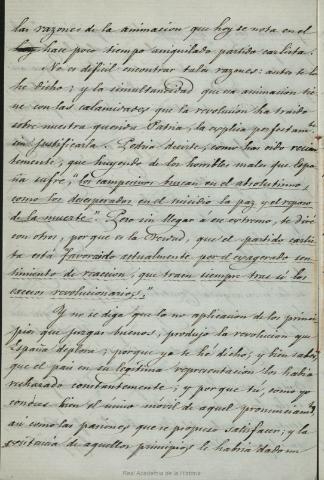 las razones de la animacion que hoy se nota en el
hace poco tiempo aniquilado partido carlista.
No es dificil encontrar tales razones: antes te lo
he dicho; y la simultaneidad que esa animacion tie
ne con las calamidades que la revolucion ha traido
sobre nuestra querida Patria, la esplica perfectamte
sin justificarla. Podria decirte, como has oido recien
temente, que huyendo de los horribles males que Espa
ña sufre, "los campesinos buscan en el absolutismo,
como los desesperados en el suicidio la paz y el reposo
de la muerte." Pero sin llegar a ese extremo, te diré
con otros, porque es la verdad, que el partido carlis
ta está favorecido actualmente por el exagerado sen
timiento de reaccion, que traen siempre tras sí los
excesos revolucionarios."
Y no se diga que la no aplicacion de los princi
pios que juzgas buenos, produjo la revolucion que
España deplora; porque ya te hé dicho, y bien sabes,
que el pais en su legítima representacion los habia
rechazado constantemente; y porque tú, como yo
conoces bien el único móvil de aquel pronunciamto
así como las pasiones que se propuso satisfacer; y la
existencia de aquellos principios le habria dado un
Real Academia de la Historia